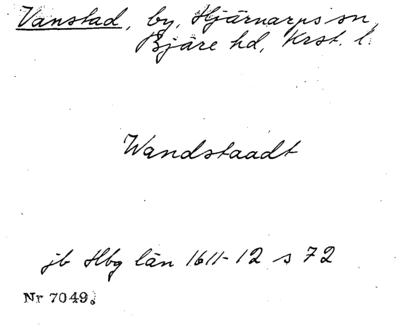 Vanstad, by, Hjärnarps sn,
Bjäre hd, Krst. l.
Wandstaadt
jb Hbg län 1611-12 s 72
Nr 7049.